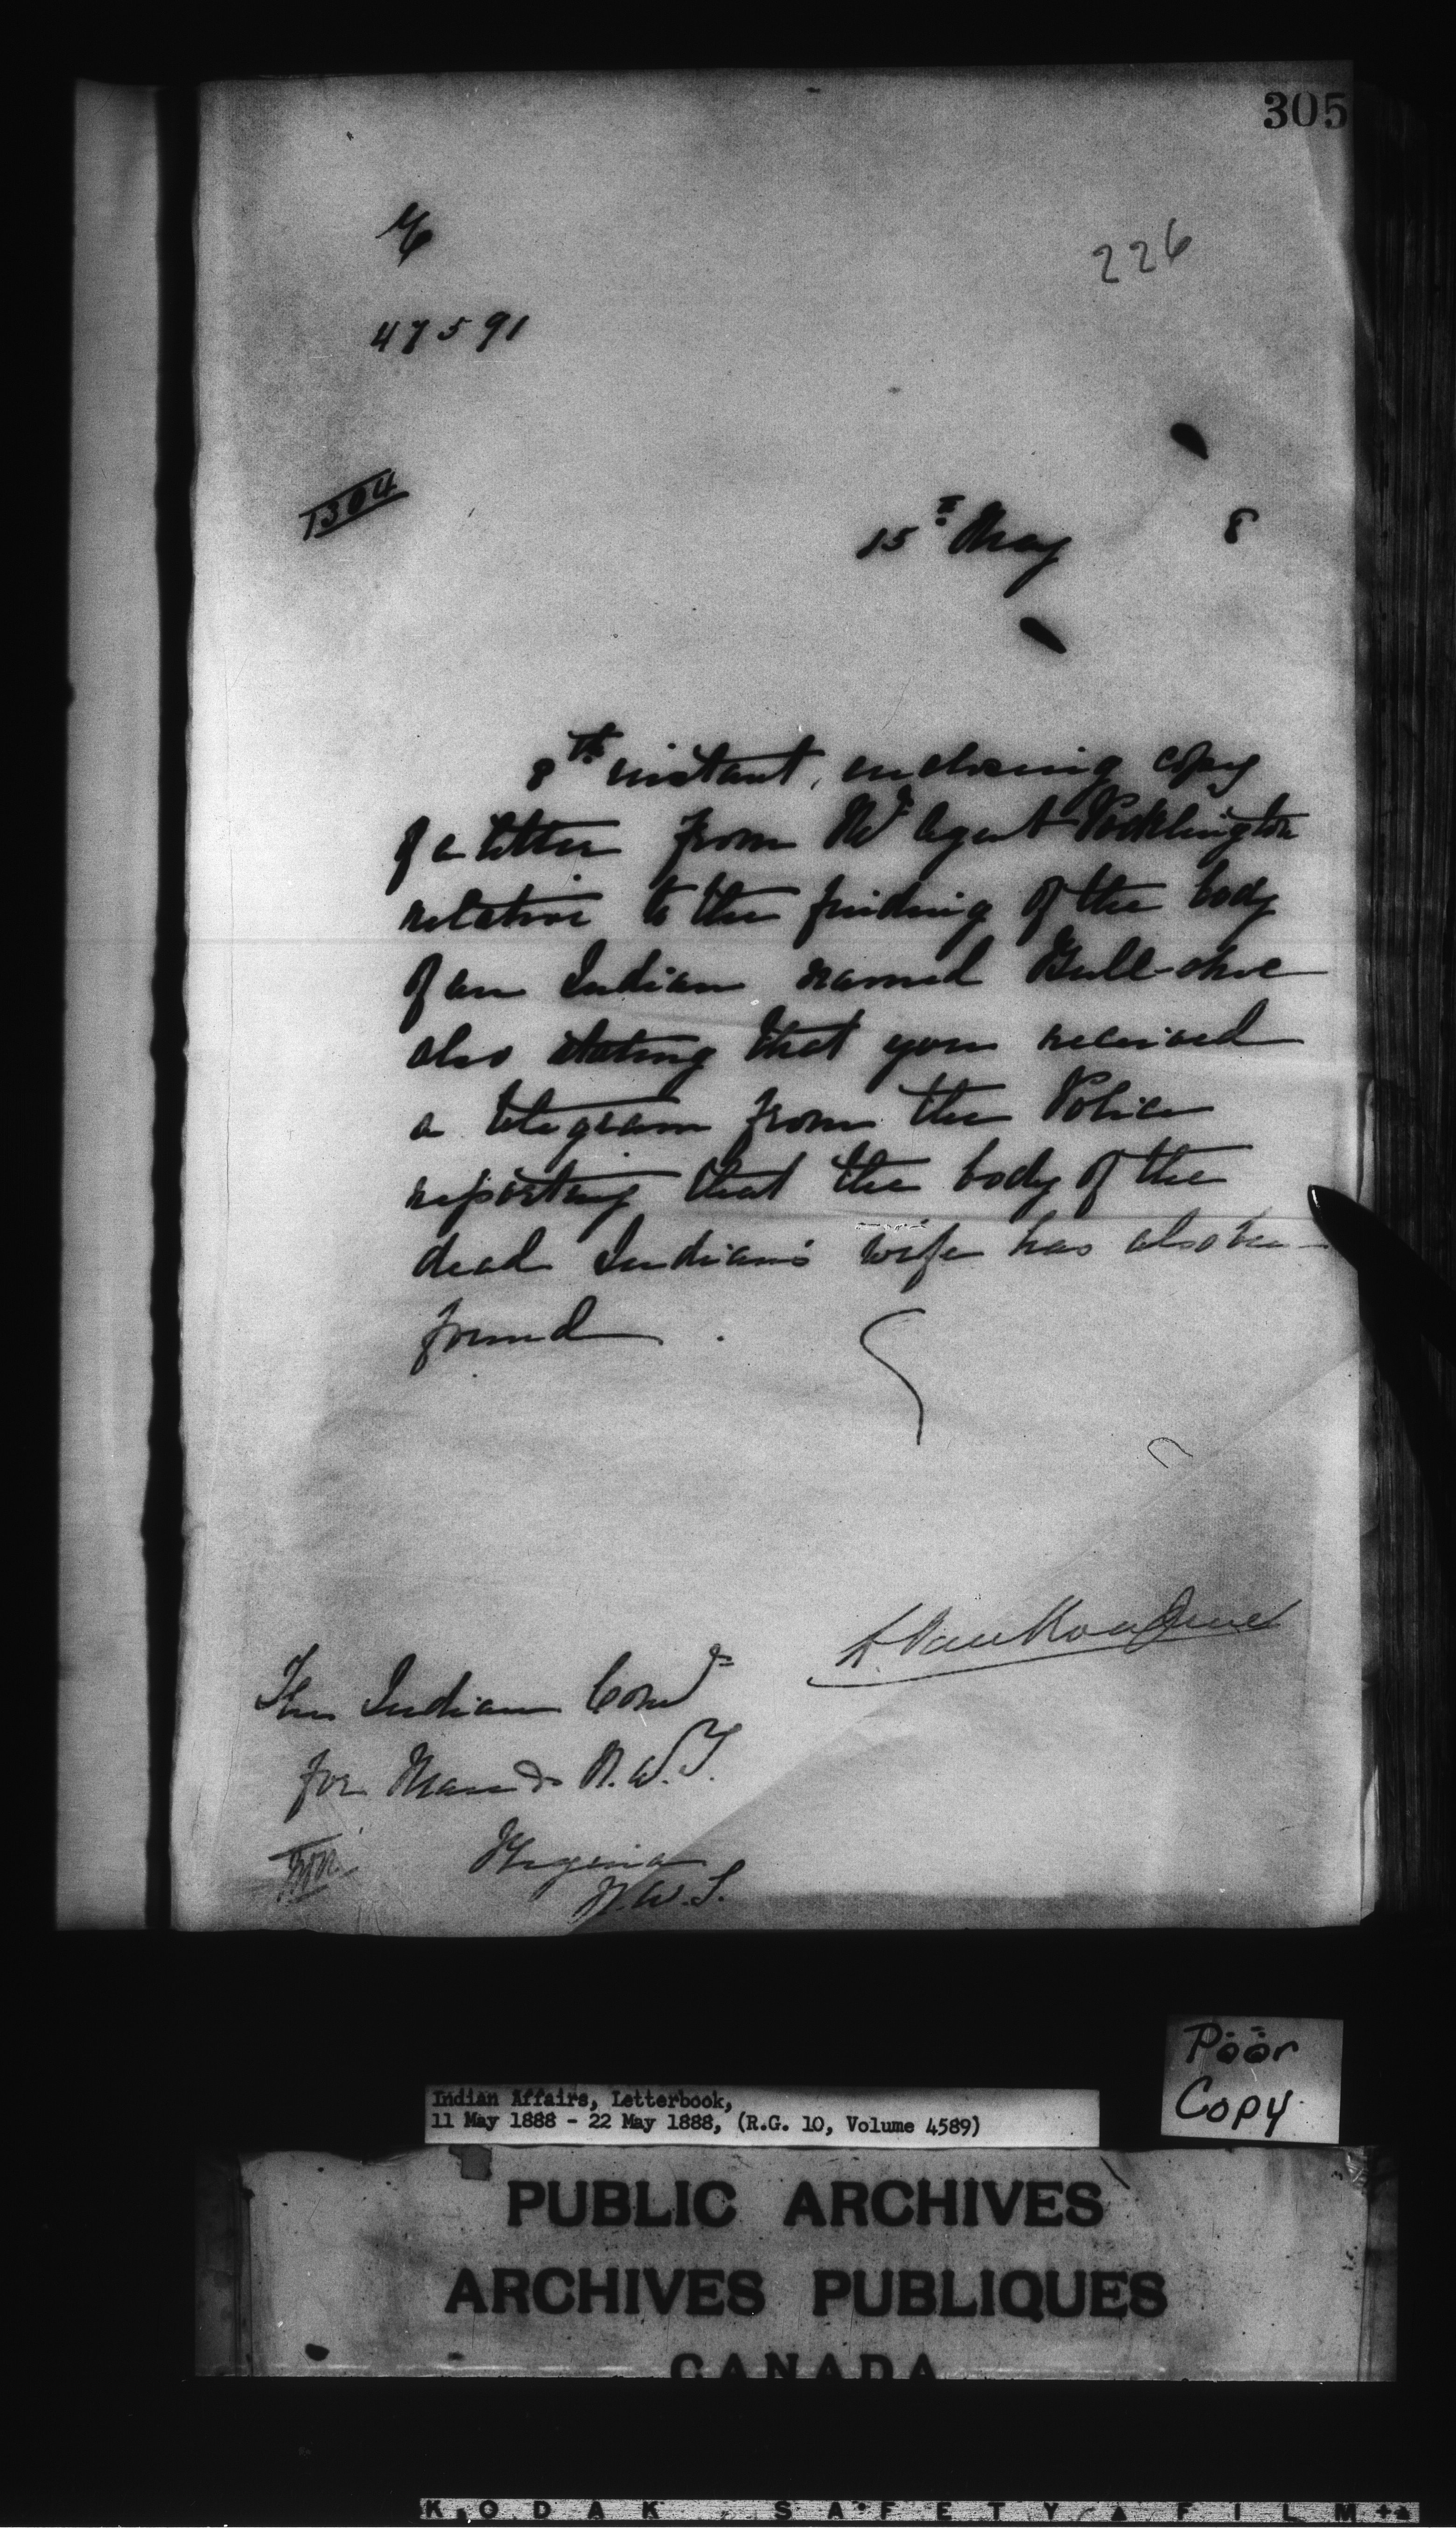 305
226
47591
1304
15th May 8
8th instant, enclosing copy
of a letter from Mr Agent Pocklington
relative to the finding of the body
of an Indian named Bull-shoe
also stating that you received
a telegram from the Police
reporting that the body of the
dead Indian's wife has also been
found.
L. VanKoughnet
The Indian Comr
for Man & N.W.T.
Regina
N.W.T.
Poor
Copy
Indian Affairs, Letterbook,
11 May 1888 - 22 May 1888, (R.G. 10, Volume 4589)
PUBLIC ARCHIVES
ARCHIVES PUBLIQUES
CANADA
KODAK SAFETY FILM